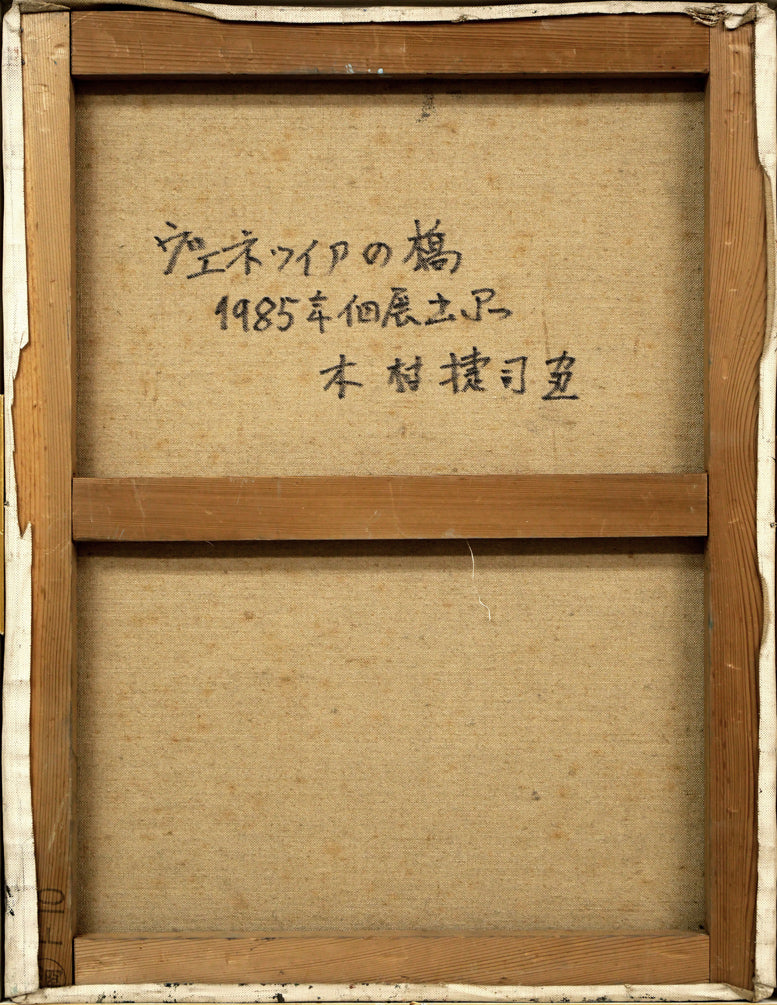 ヴェネツィアの橋
1985年個展出品
木村捷司画
F10